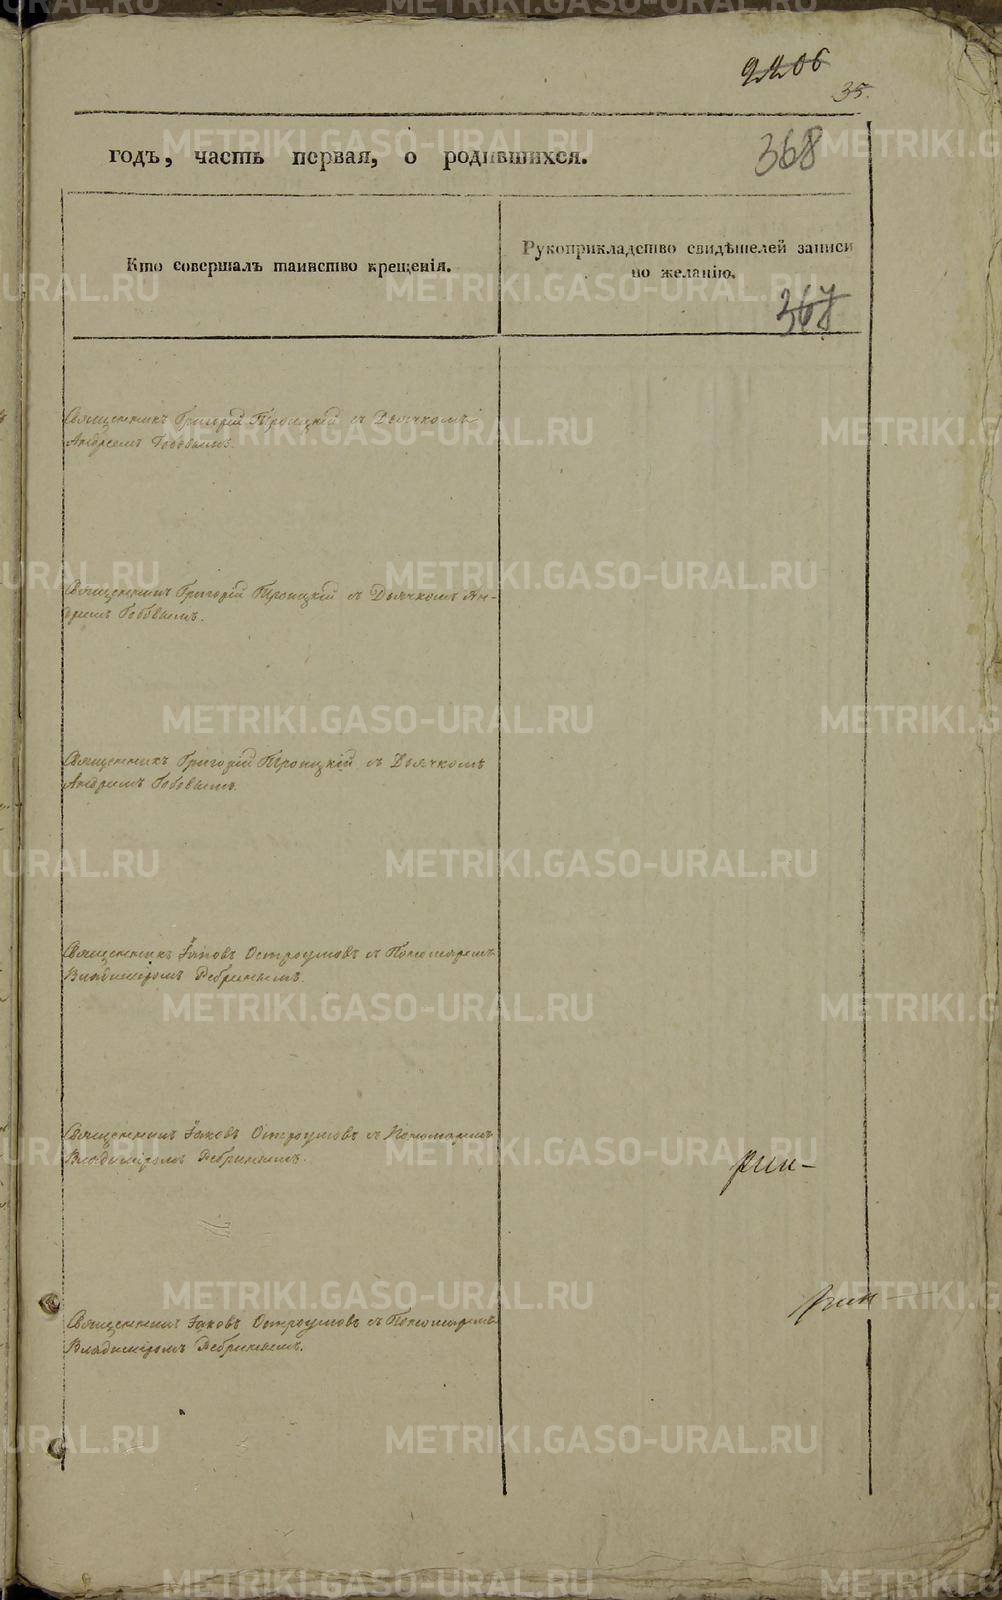 2206
35.
годъ, часть первая, о родившихся.
368
Кто совершалъ таинство крещенія.
Рукоприкладство свидѣтелей записи
по желанію.
367
Священникъ Григорій Троицкій съ Дьячкомъ
Андреемъ Бобовымъ.
Священникъ Григорій Троицкій съ Дьячкомъ Ан-
дреемъ Бобовымъ.
Священникъ Григорій Троицкій съ Дьячкомъ
Андреемъ Бобовымъ.
Священникъ Іаковъ Остроумовъ съ Пономаремъ
Владиміромъ Ребринымъ.
Священникъ Іаковъ Остроумовъ съ Пономаремъ
Владиміромъ Ребринымъ.
Священникъ Іаковъ Остроумовъ съ Пономаремъ
Владиміромъ Ребринымъ.
METRIKI.GASO-URAL.RU